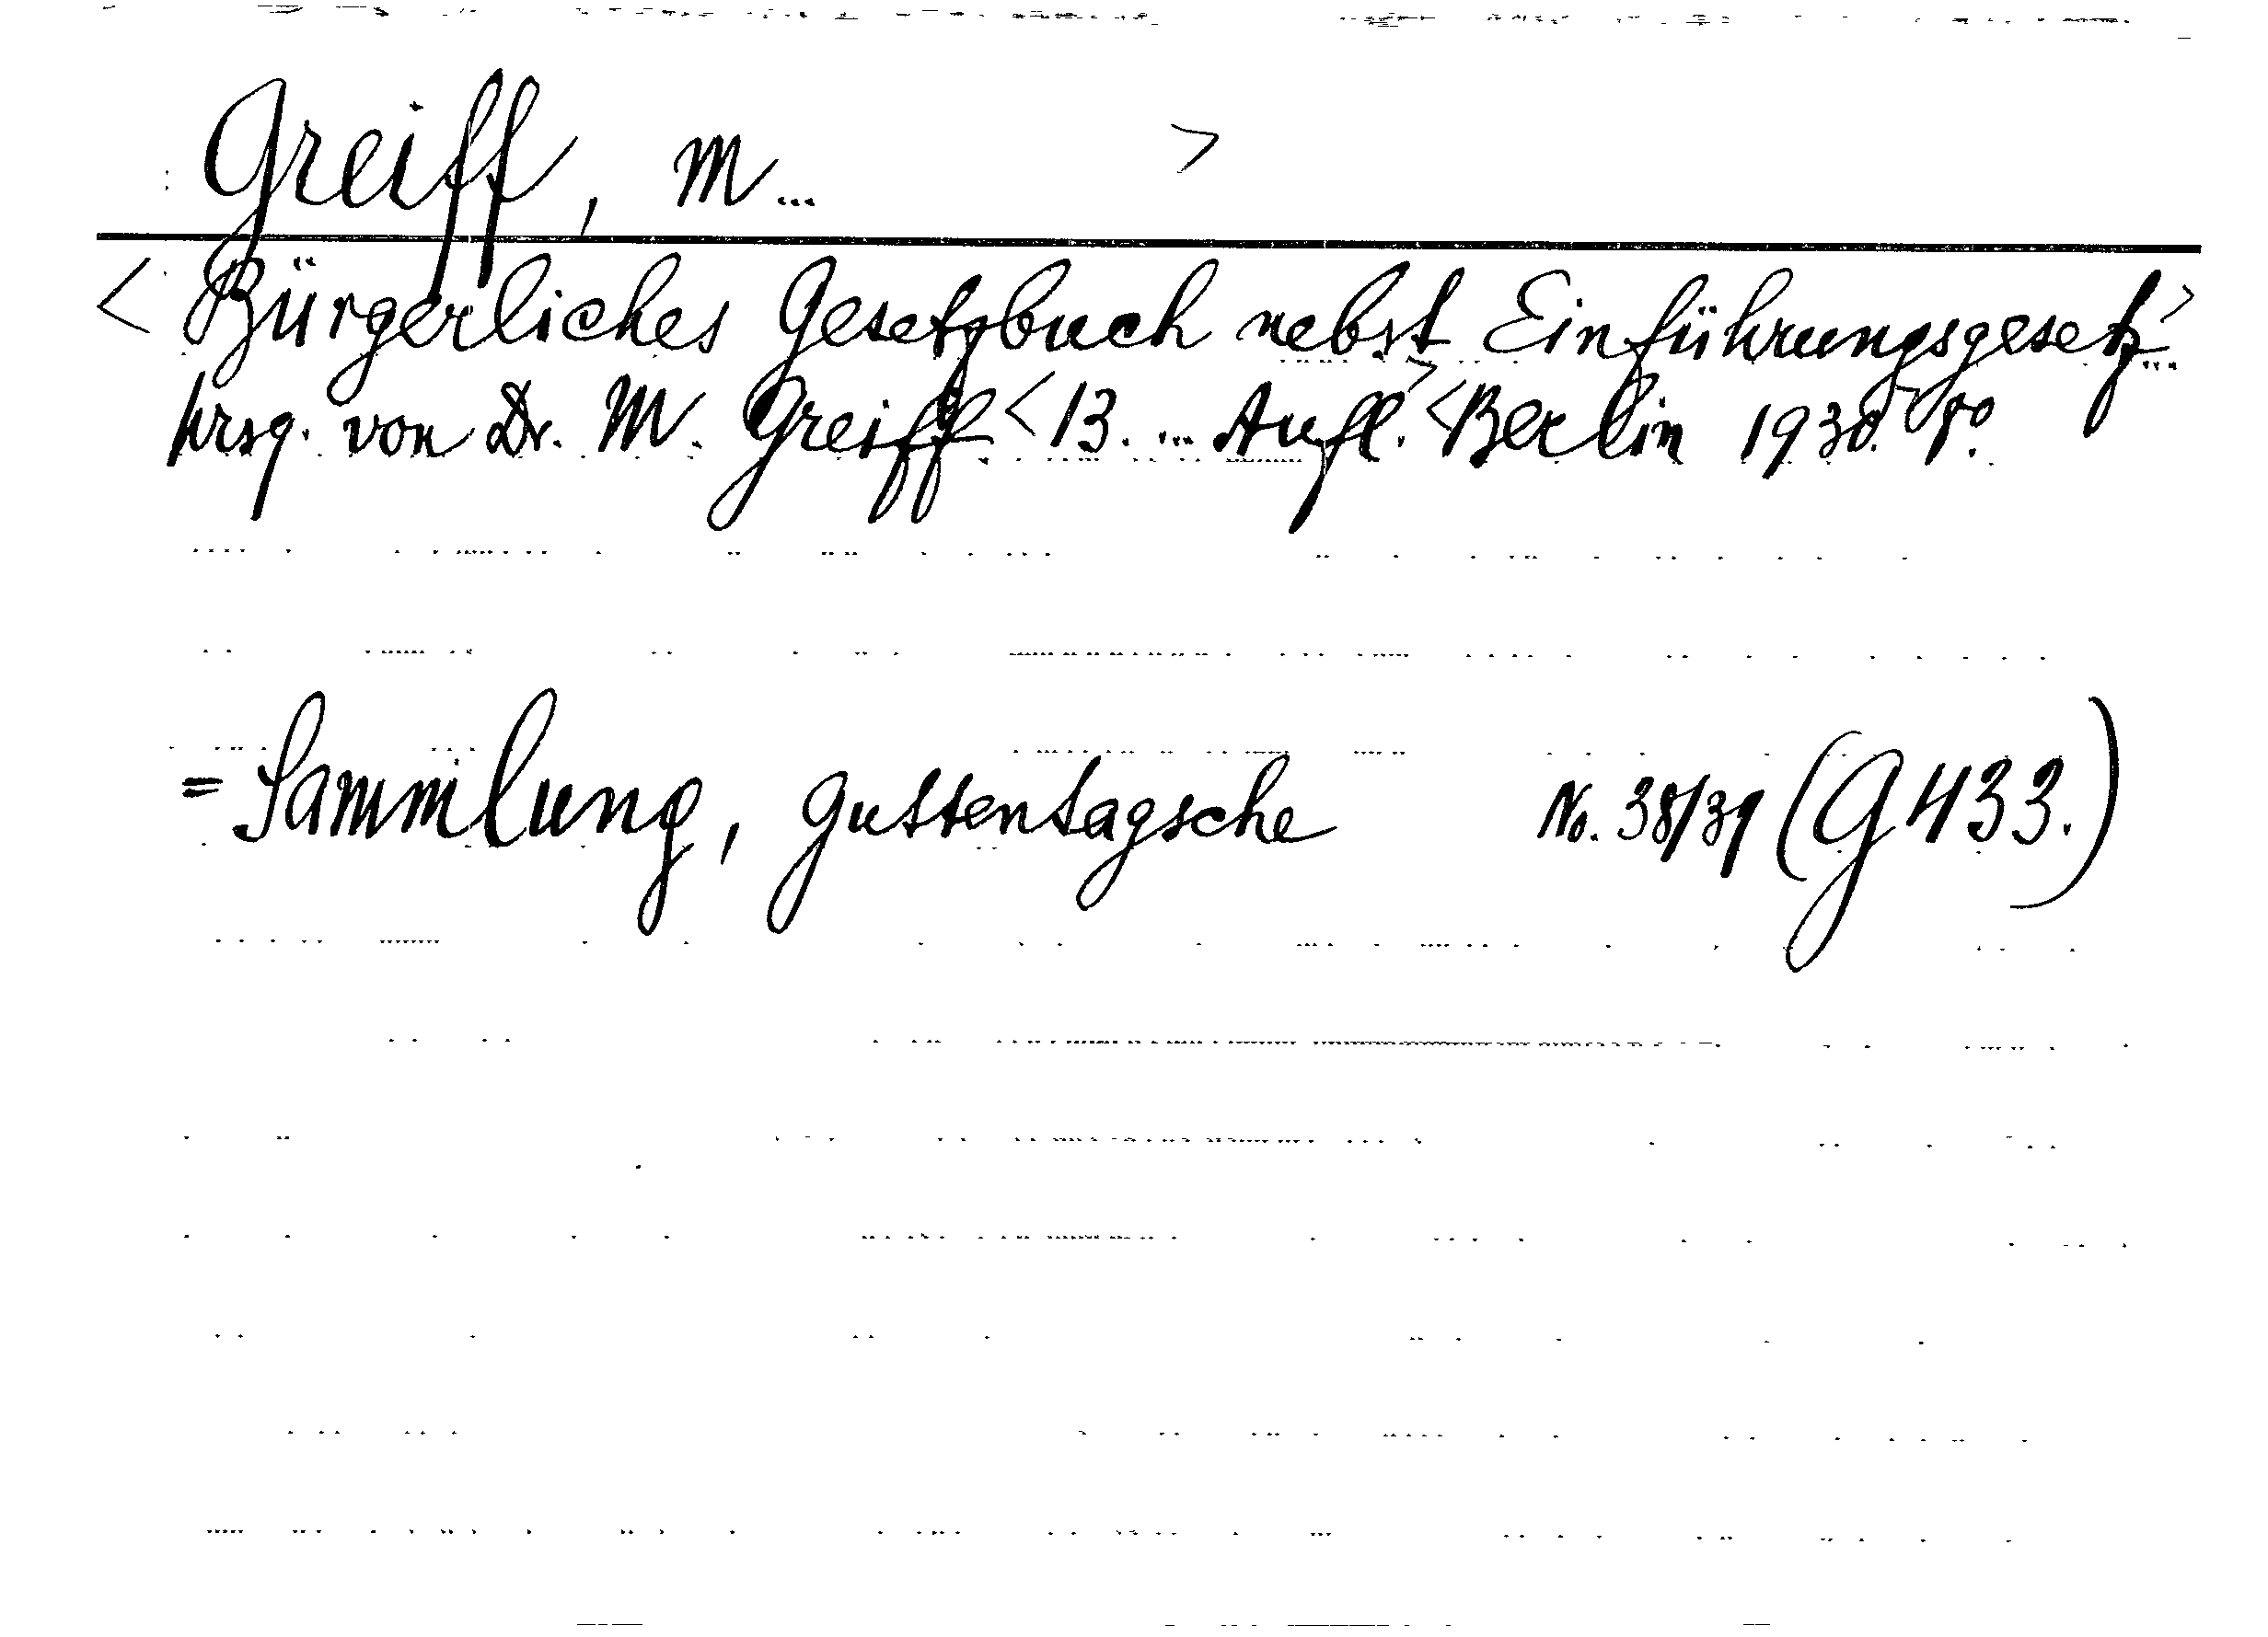 Greiff, M... >
< Bürgerliches Gesetzbuch nebst Einführungsgesetz > ...
hrsg. von Dr. M. Greiff < 13. ... Aufl. > < Berlin 1930. 8°.
= Sammlung, Guttentagsche No. 38/39 (G 433.)